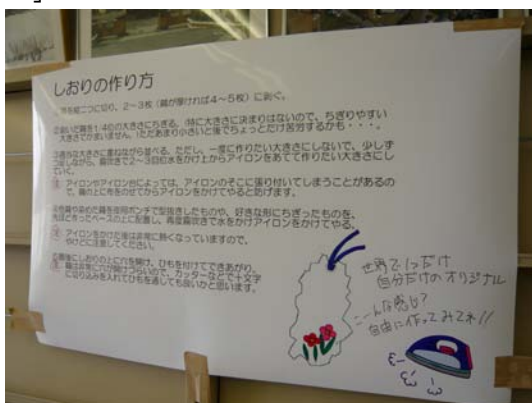 しおりの作り方
二つに切り、2～3枚（繭が厚ければ4～5枚）に剥ぐ。
②剥いだ繭を1/4の大きさにちぎる。（特に大きさに決まりはないので、ちぎりやすい
大きさでかまいません。ただあまり小さいと後でちょっとだけ苦労するかも・・・。
③適当な大きさに重ねながら並べる。ただし、一度に作りたい大きさにしないで、少しず
つ足しながら、霧吹きで2～3回の水をかけ上からアイロンをあてて作りたい大きさにし
ていく。
アイロンやアイロン台によっては、アイロンのそこに張り付いてしまうことがあるの
で、繭の上に布をのせてからアイロンをかけてやると防げます。
④色繭や染めた繭を使用ポンチで型抜きしたものや、好きな形にちぎったものを、
先ほど作ったベースの上に配置し、再度霧吹きで水をかけアイロンをかけてやる。
アイロンをかけた後は非常に熱くなっていますので、
やけどに注意してください。
⑤最後にしおりの上に穴を開け、ひもを付けてできあがり。
繭は非常に穴が開けづらいので、カッターなどで十文字
に切り込みを入れてひもを通しても良いかと思います。
世界で1つだけ
自分だけのオリジナル
こーんな感じ？
自由に作ってみてネ！！